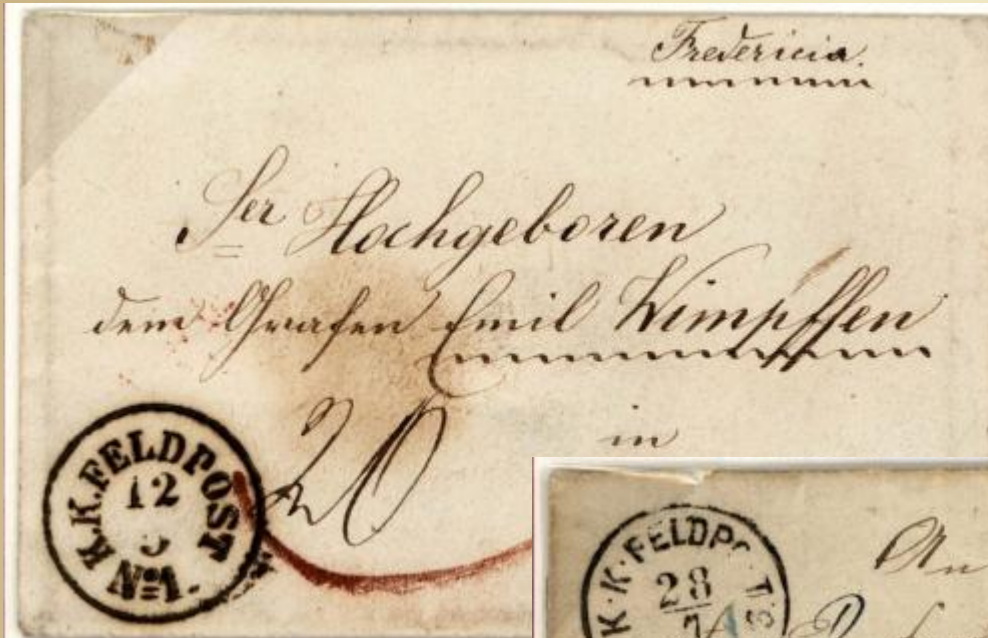 Fredericia.
Ser Hochgeboren
dem Grafen Emil Wimpffen
20
in
K.K.FELDPOST
12
No 1.
K.K.FELDP
28
7
An